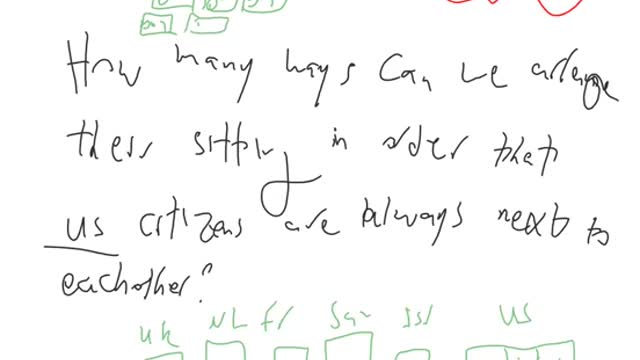 How many ways can we arrange
their sitting in order that
us citizens are always next to
eachother?
uk NL fr US